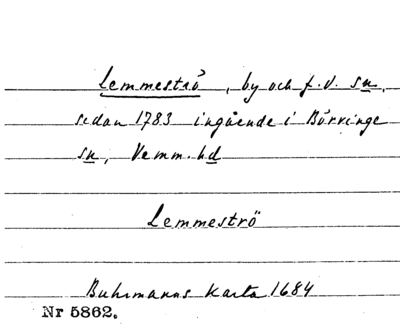 Lemmeströ, by och f.d. sn,
sedan 1783 ingående i Börringe
sn, Vemm. hd
Lemmeströ
Buhrmanns karta 1684
Nr 5862.